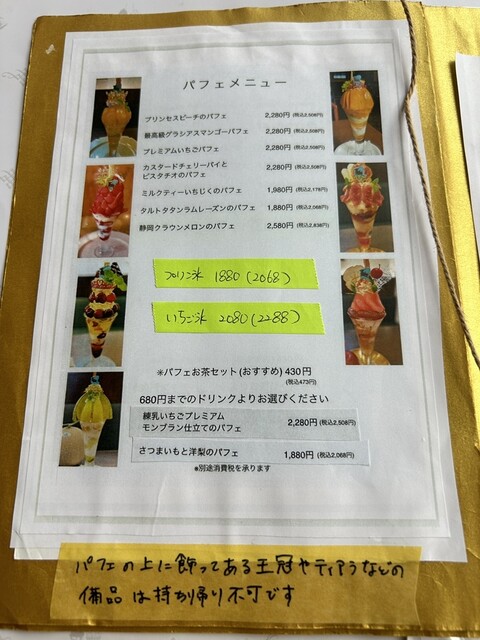 パフェメニュー
プリンセスピーチのパフェ 2,280円 (税込2,508円)
最高級グラシアスマンゴーパフェ 2,280円 (税込2,508円)
プレミアムいちごパフェ 2,280円 (税込2,508円)
カスタードチェリーパイと
ピスタチオのパフェ 2,280円 (税込2,508円)
ミルクティーいちじくのパフェ 1,980円 (税込2,178円)
タルトタタンラムレーズンのパフェ 1,880円 (税込2,068円)
静岡クラウンメロンのパフェ 2,580円 (税込2,838円)
プリン氷 1880 (2068)
いちご氷 2080 (2288)
※パフェお茶セット(おすすめ) 430円
(税込473円)
680円までのドリンクよりお選びください
練乳いちごプレミアム
モンブラン仕立てのパフェ 2,280円 (税込2,508円)
さつまいもと洋梨のパフェ 1,880円 (税込2,068円)
*別途消費税を承ります
パフェの上に飾ってある王冠やティアラなどの
備品は持ち帰り不可です